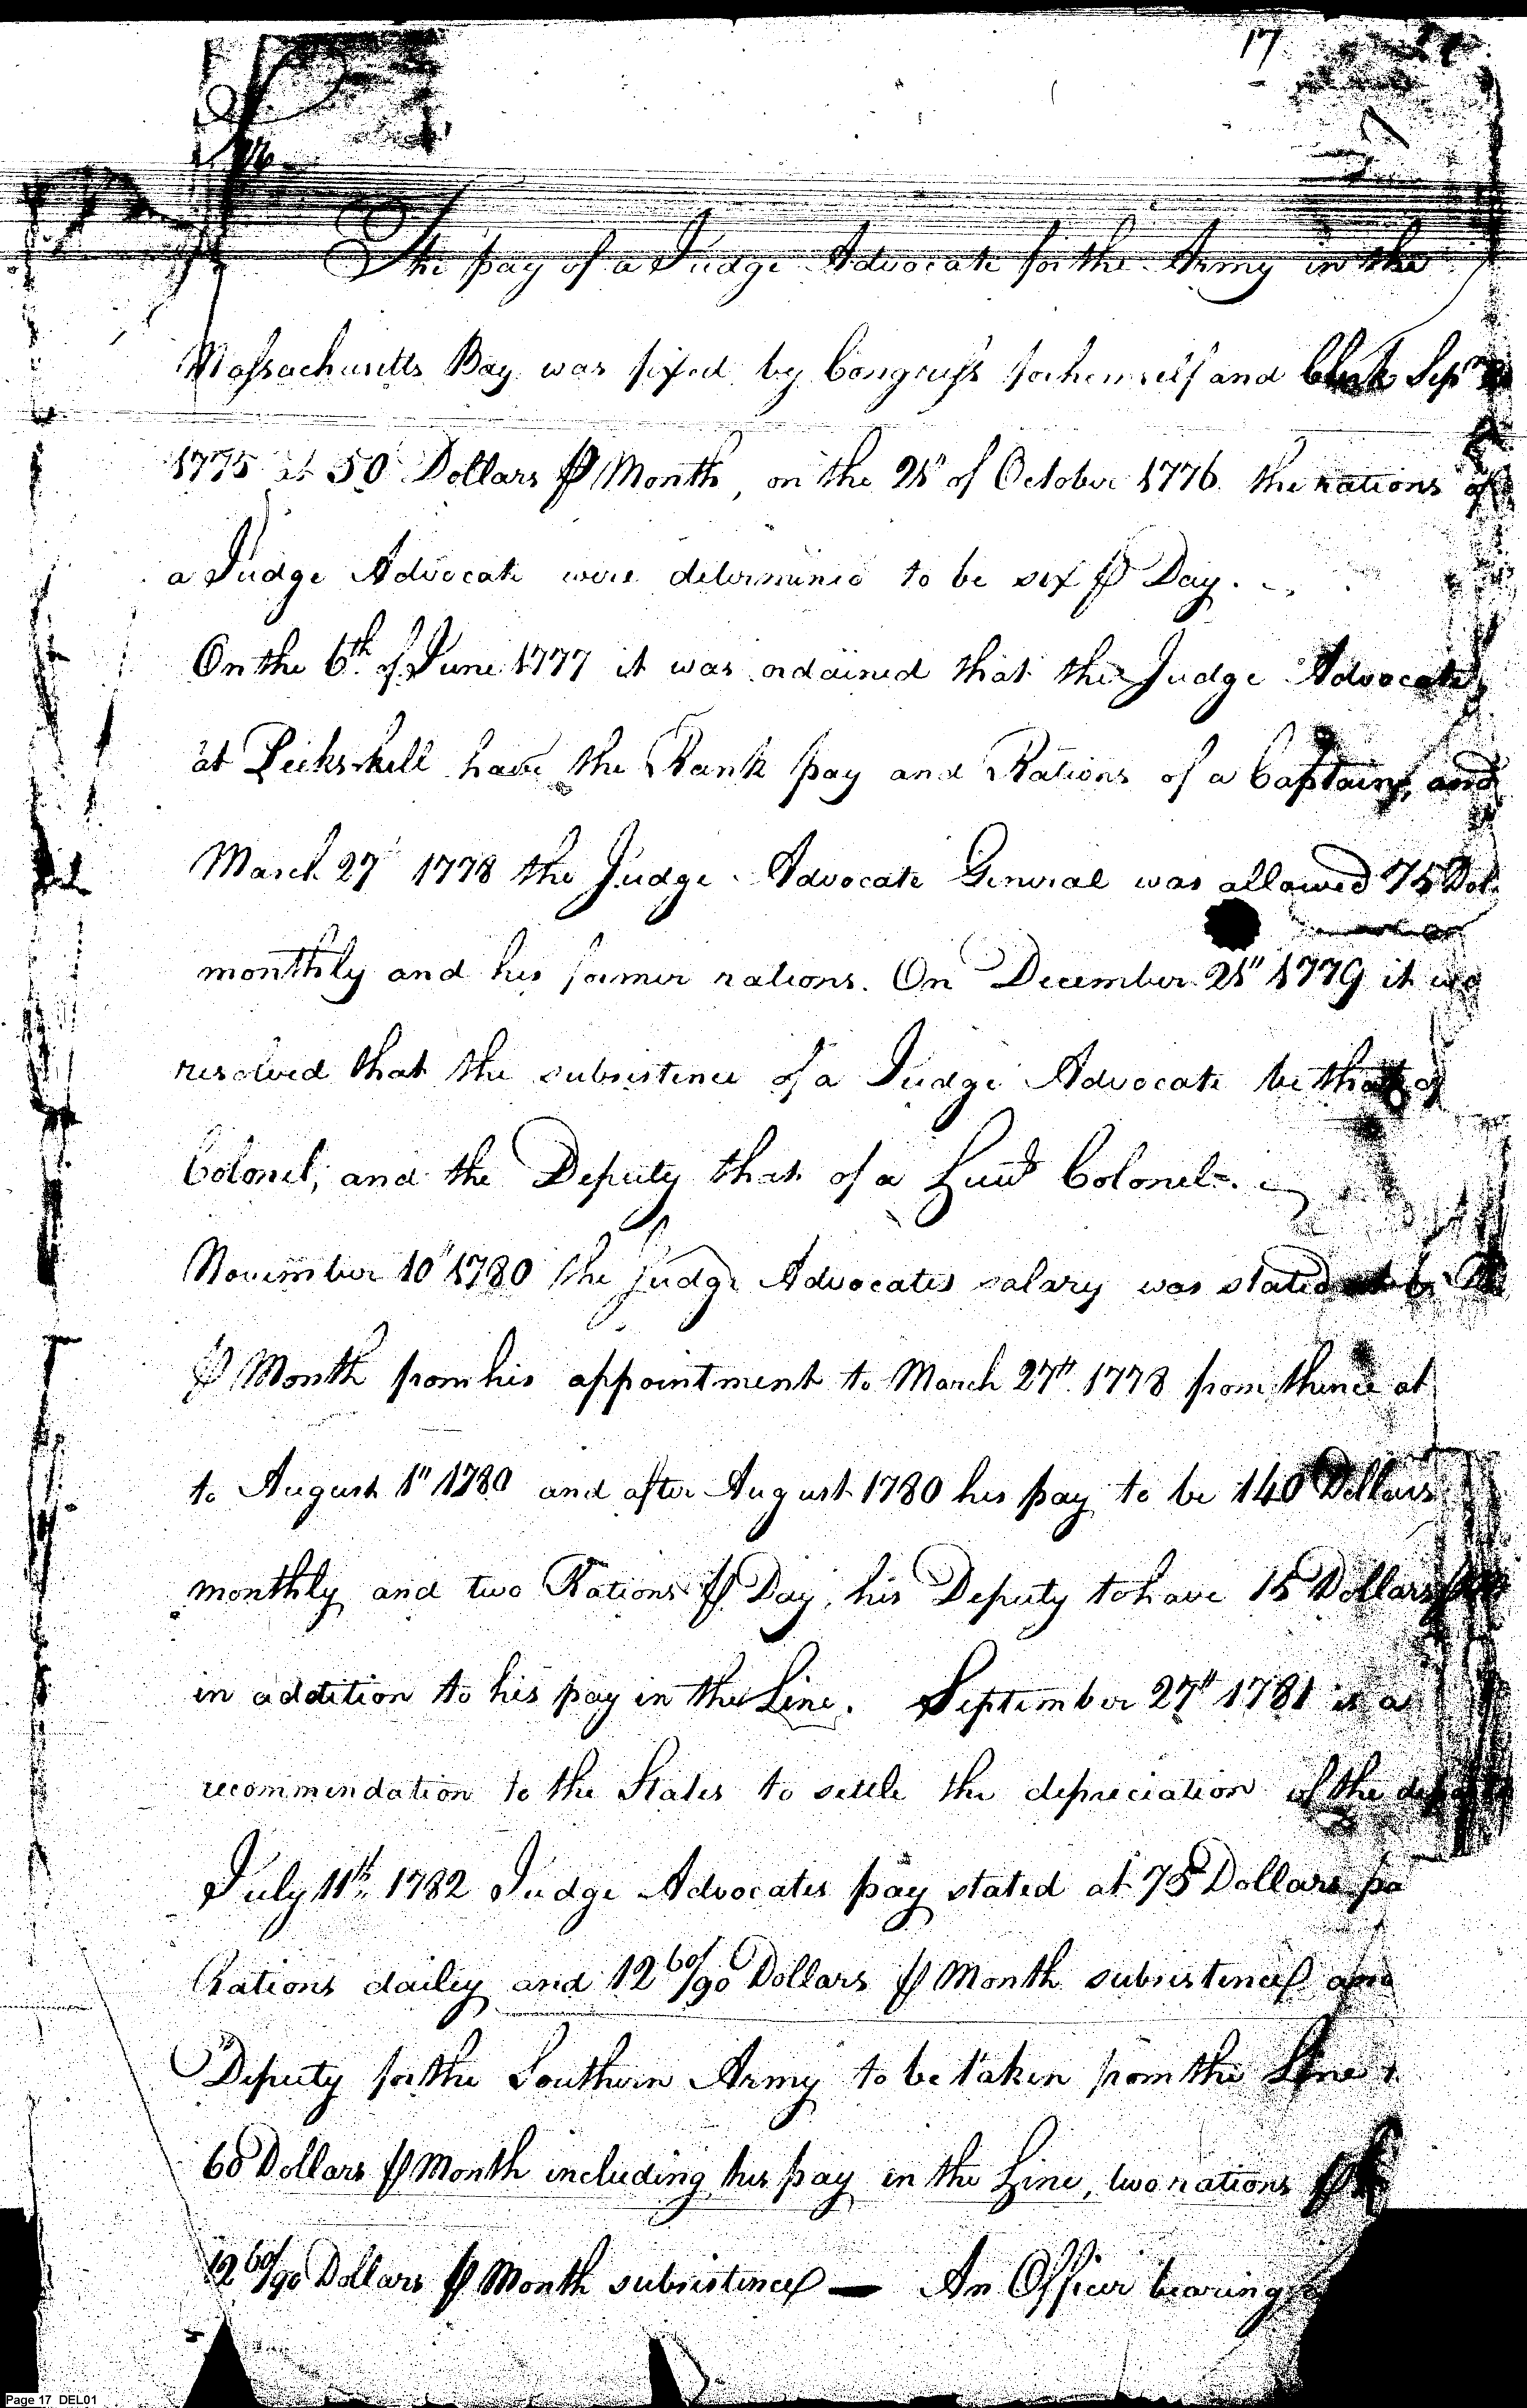 17
The pay of a Judge Advocate for the Army in the
Massachusetts Bay was fixed by Congress for himself and Clerk Sepr
1775 at 50 Dollars ⅌ Month, on the 21" of October 1776 the rations of
a Judge Advocate were determined to be six ⅌ Day.
On the 6th of June 1777 it was ordained that the Judge Advocate
at Peekskill have the Rank pay and Rations of a Captain, and
March 27" 1778 the Judge Advocate General was allowed 75 Dol
monthly and his former rations. On December 21" 1779 it was
resolved that the subsistence of a Judge Advocate be that of
Colonel, and the Deputy that of a Lieut Colonel.
November 10" 1780 the Judge Advocates salary was stated
⅌ Month from his appointment to March 27th 1778 from thence at
to August 1" 1780 and after August 1780 his pay to be 140 Dollars
monthly and two Rations ⅌ Day, his Deputy to have 15 Dollars
in addition to his pay in the Line. September 27th 1781 is a
recommendation to the States to settle the depreciation of the
July 11th 1782 Judge Advocates pay stated at 75 Dollars
Rations dailey and 12 60/90 Dollars ⅌ Month subsistence and
Deputy for the Southern Army to be taken from the Line
60 Dollars ⅌ Month including his pay in the Line, two rations ⅌
12 60/90 Dollars ⅌ Month subsistence — An Officer bearing
Page 17 DEL01